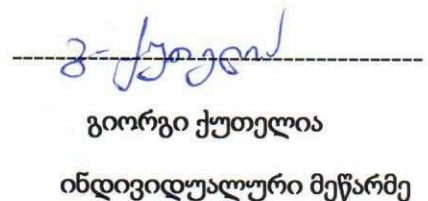 გ. ქუთელია
გიორგი ქუთელია
ინდივიდუალური მეწარმე